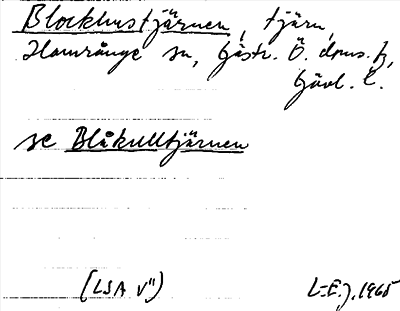 Blockhustjärnen, tjärn,
Hamrånge sn, Gästr. Ö. dms. fg,
Gävl. l.
se Blåkulltjärnen
(LSA V") L-E.J. 1965